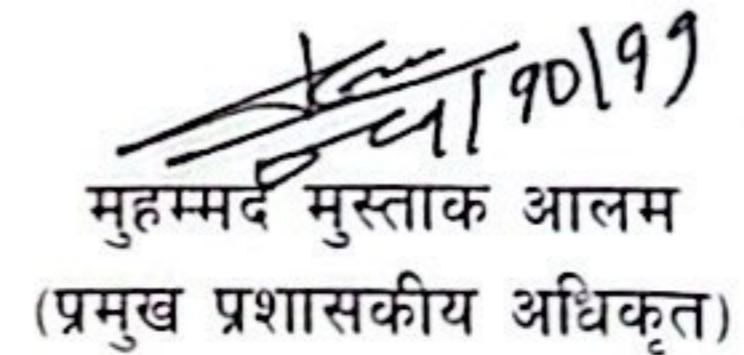 १०/११
मुहम्मद मुस्ताक आलम
(प्रमुख प्रशासकीय अधिकृत)